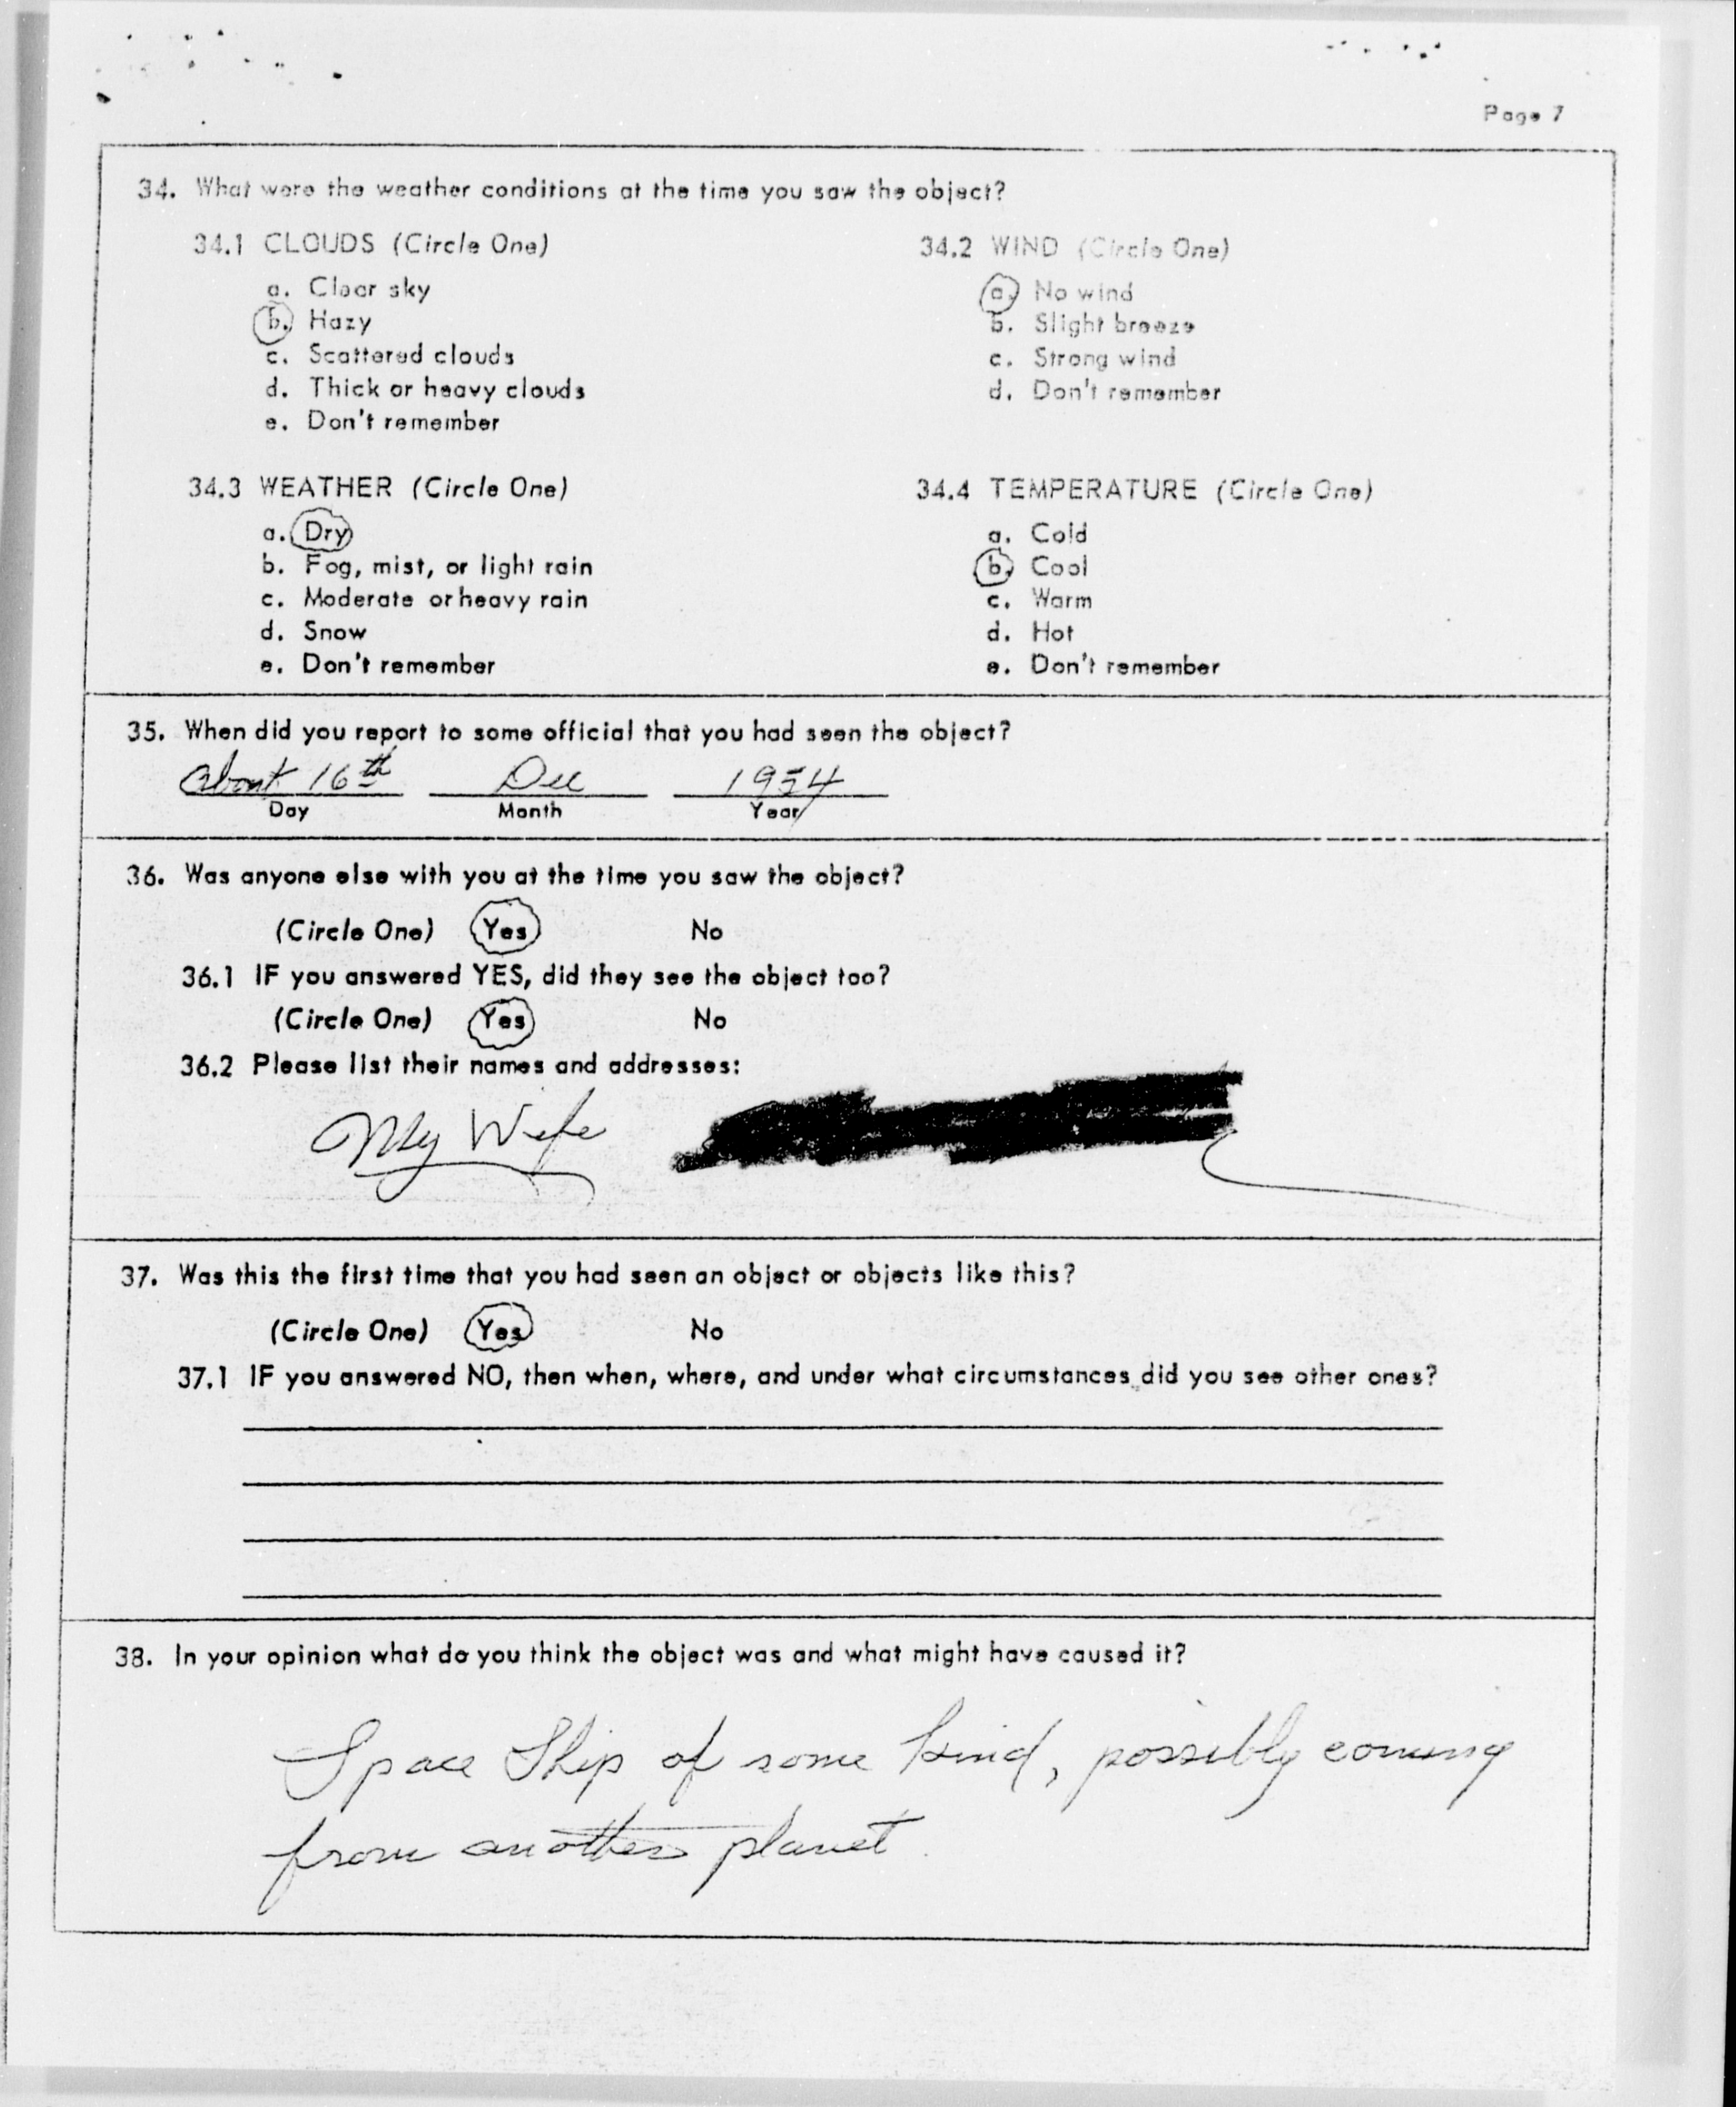 Page 7
34. What were the weather conditions at the time you saw the object?
34.1 CLOUDS (Circle One)
a. Clear sky
b. Hazy
c. Scattered clouds
d. Thick or heavy clouds
e. Don't remember
34.2 WIND (Circle One)
a. No wind
b. Slight breeze
c. Strong wind
d. Don't remember
34.3 WEATHER (Circle One)
a. Dry
b. Fog, mist, or light rain
c. Moderate or heavy rain
d. Snow
e. Don't remember
34.4 TEMPERATURE (Circle One)
a. Cold
b. Cool
c. Warm
d. Hot
e. Don't remember
35. When did you report to some official that you had seen the object?
About 16th Dec 1954
Day Month Year
36. Was anyone else with you at the time you saw the object?
(Circle One) Yes No
36.1 IF you answered YES, did they see the object too?
(Circle One) Yes No
36.2 Please list their names and addresses:
My Wife
37. Was this the first time that you had seen an object or objects like this?
(Circle One) Yes No
37.1 IF you answered NO, then when, where, and under what circumstances did you see other ones?
38. In your opinion what do you think the object was and what might have caused it?
Space Ship of some kind, possibly coming
from another planet.